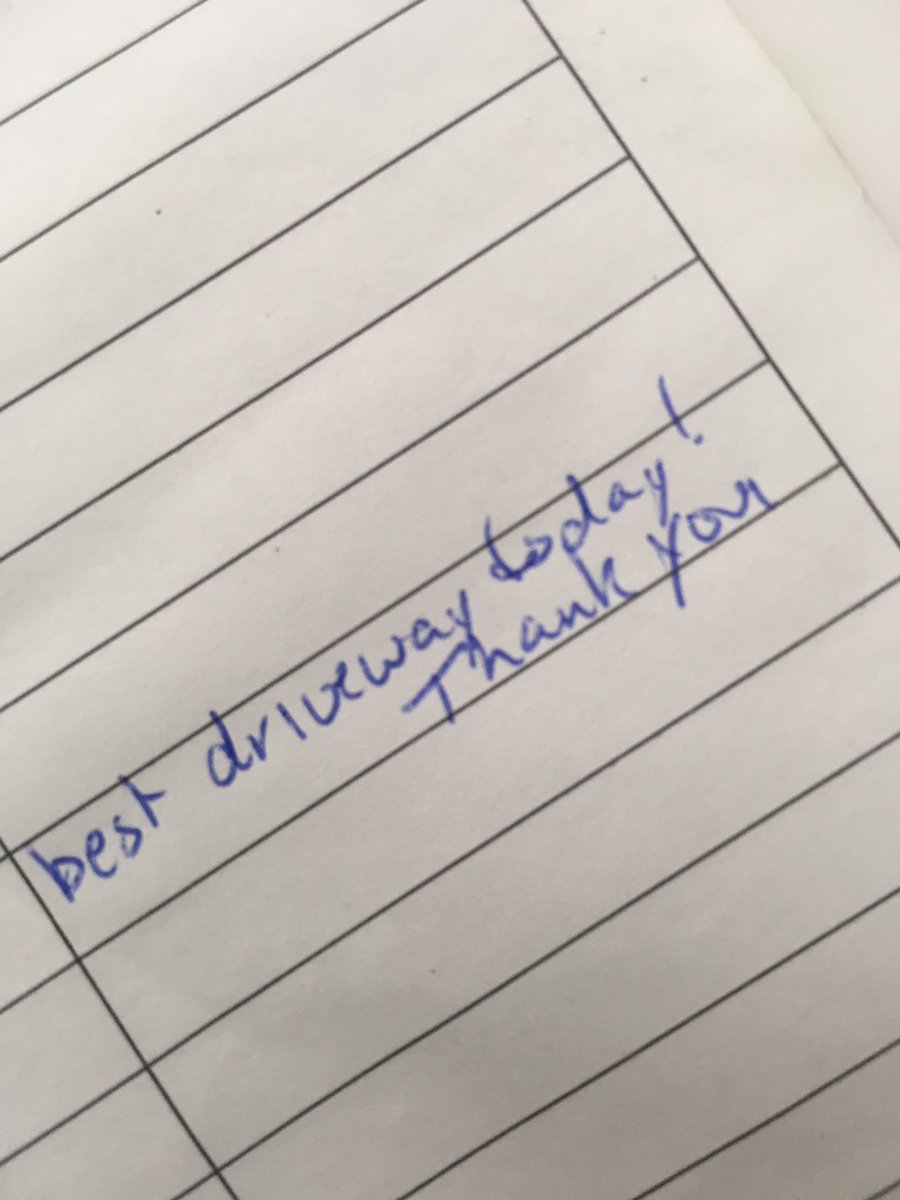 best driveway today!
Thank you